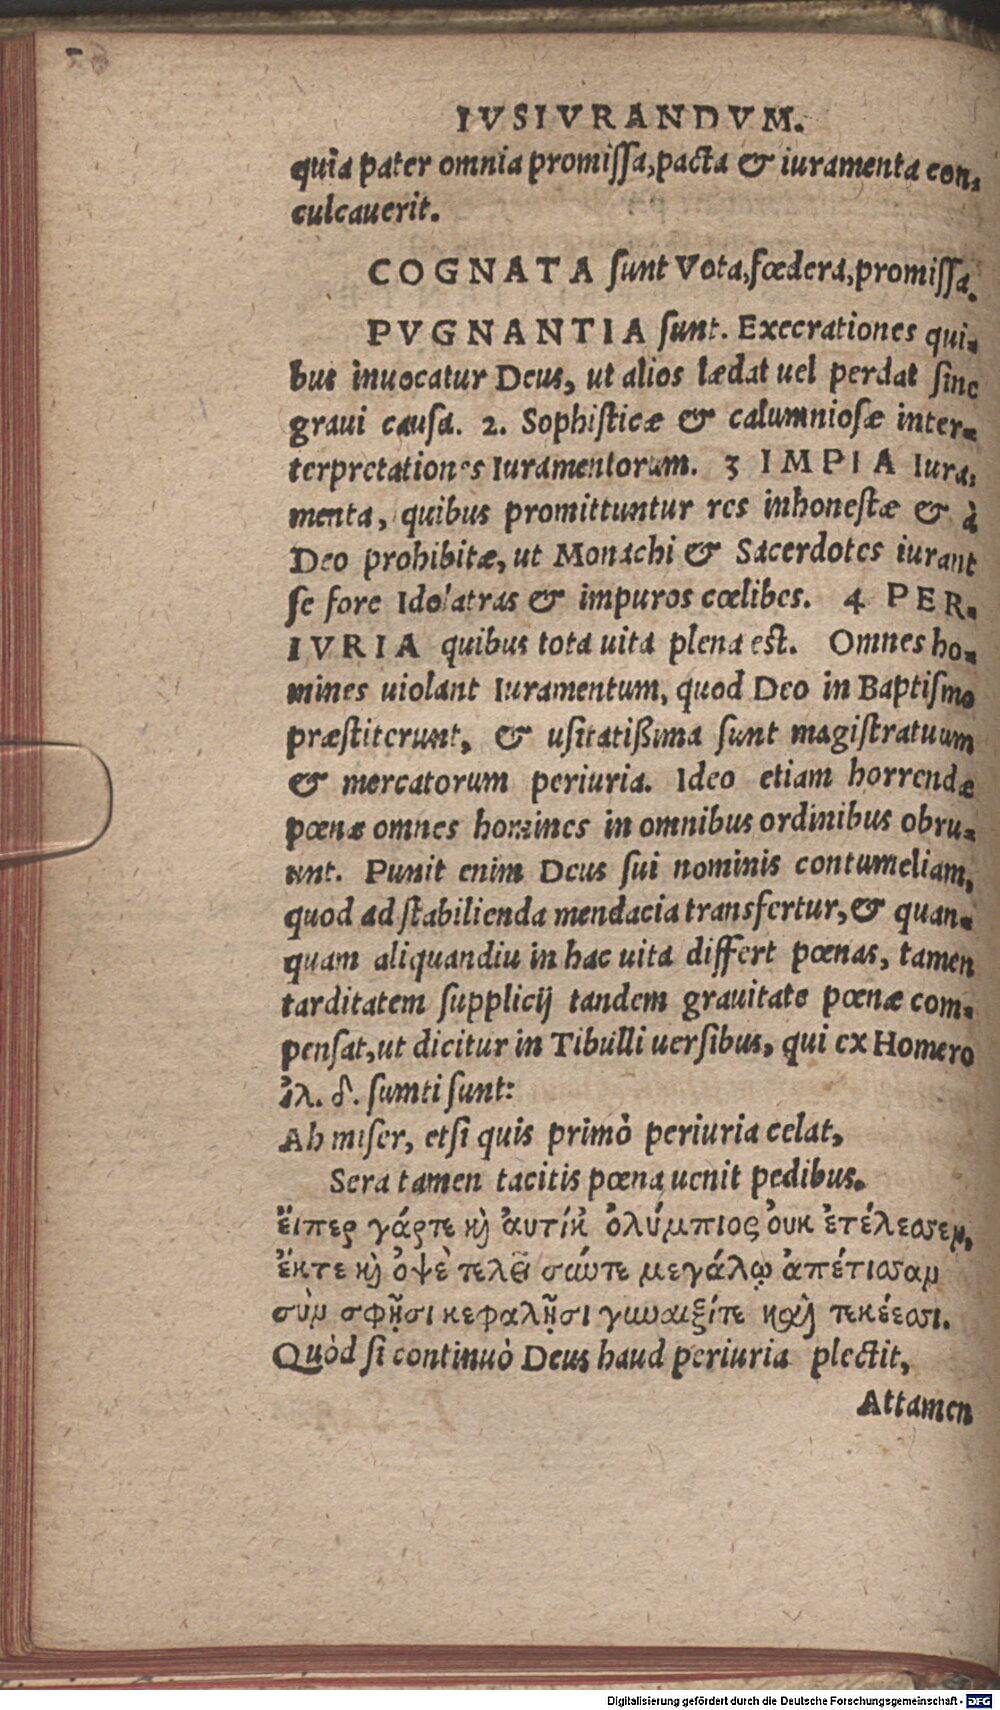 IVSIVRANDVM.
quia pater omnia promissa, pacta & iuramenta con-
culcauerit.
COGNATA sunt Vota, fœdera, promissa.
PVGNANTIA sunt. Execrationes qui-
bus inuocatur Deus, ut alios lædat uel perdat sine
graui causa. 2. Sophisticæ & calumniosæ inter-
terpretationes Iuramentorum. 3 IMPIA Iura-
menta, quibus promittuntur res inhonestæ & à
Deo prohibitæ, ut Monachi & Sacerdotes iurant
se fore Idolatras & impuros cœlibes. 4 PER-
IVRIA quibus tota uita plena est. Omnes ho-
mines uiolant Iuramentum, quod Deo in Baptismo
præstiterunt, & usitatißima sunt magistratuum
& mercatorum periuria. Ideo etiam horrendæ
pœnæ omnes homines in omnibus ordinibus obru-
unt. Punit enim Deus sui nominis contumeliam,
quod ad stabilienda mendacia transfertur, & quan-
quam aliquandiu in hac uita differt pœnas, tamen
tarditatem supplicij tandem grauitate pœnæ com-
pensat, ut dicitur in Tibulli uersibus, qui ex Homero
ἰλ. δ. sumti sunt:
Ah miser, etsi quis primò periuria celat,
Sera tamen tacitis pœna uenit pedibus.
ἔιπερ γάρτε καὶ ἀυτίκ ὀλύμπιος ὀυκ ἐτέλεσσεν,
ἔκτε καὶ ὀψὲ τελεῖ σύντε μεγάλῳ ἀπέτισσαν
σὺν σφῇσι κεφαλῇσι γυναιξίτε καὶ τεκέεσσι.
Quòd si continuò Deus haud periuria plectit,
Attamen
Digitalisierung gefördert durch die Deutsche Forschungsgemeinschaft - DFG